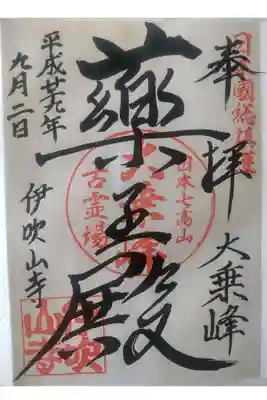 奉拝 大乗峰
日本七高山
大乗峰
古霊場
藥王殿
平成廿九年
九月二日
伊吹山寺
伊吹
山寺